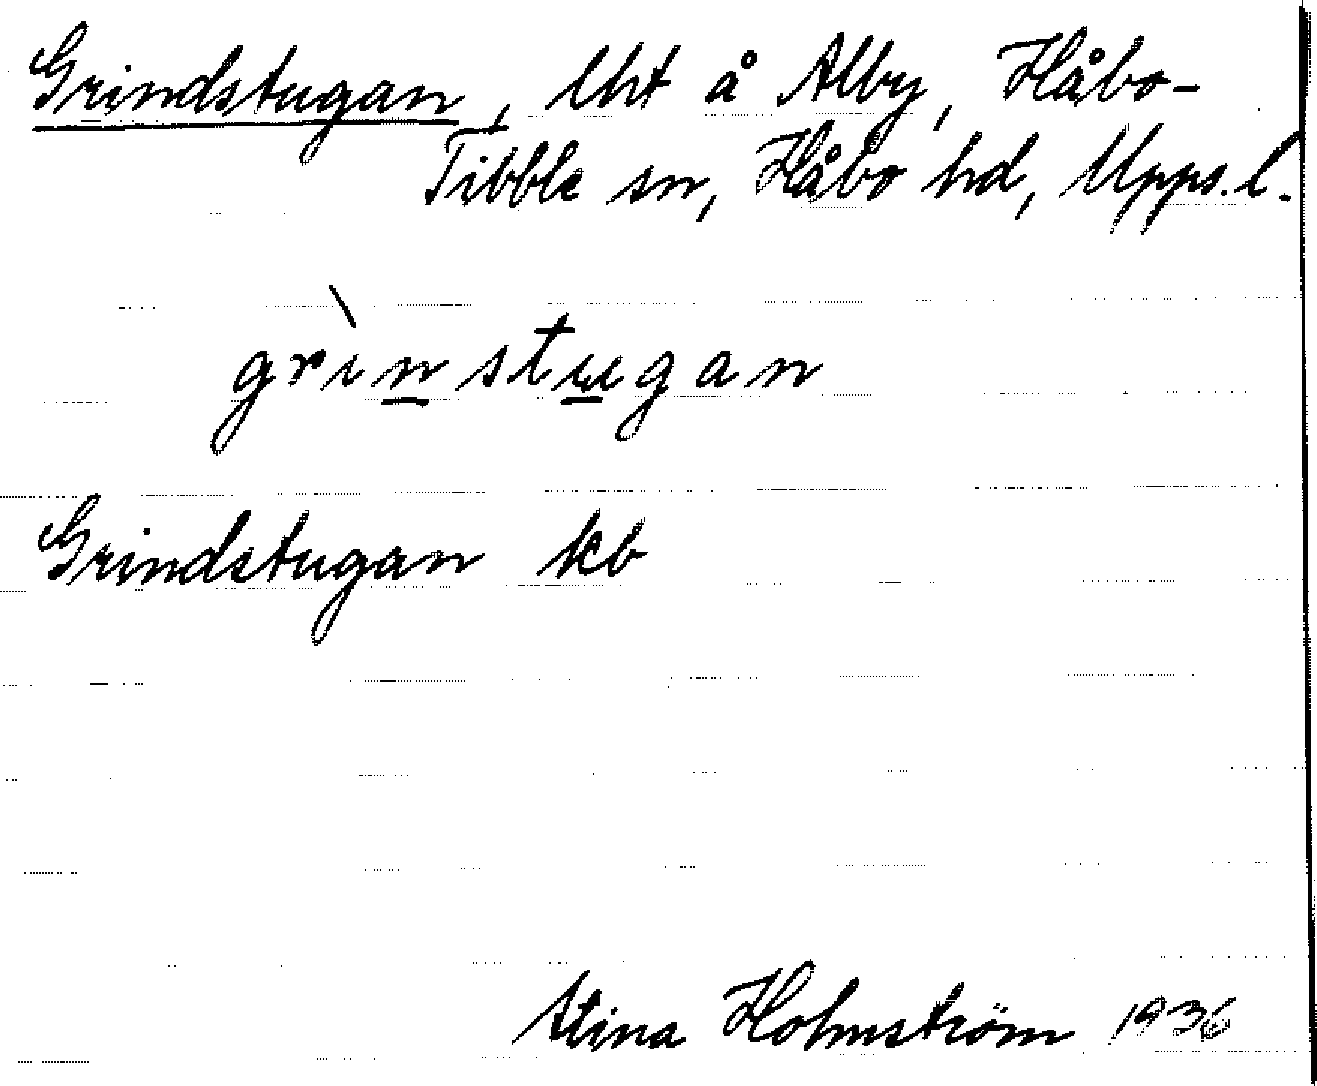 Grindstugan, lht å Alby, Håbo-
Tibble sn, Håbo hd, Upps. l.
grìnstugan
Grindstugan kb
Stina Holmström 1936